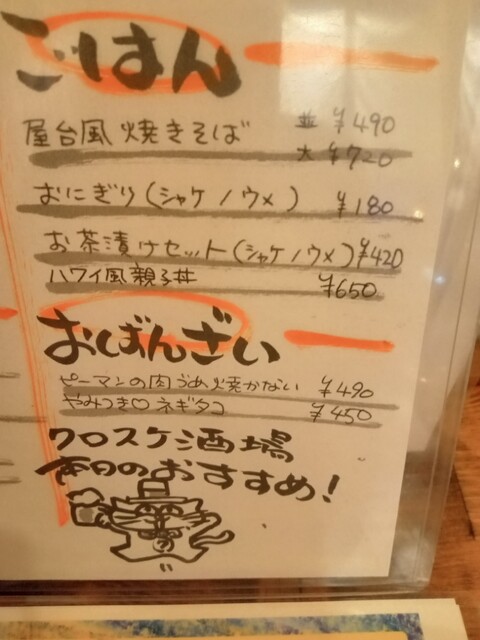 ごはん
屋台風焼きそば 並 ¥490
大 ¥720
おにぎり(シャケ/ウメ) ¥180
お茶漬けセット(シャケ/ウメ) ¥420
ハワイ風親子丼 ¥650
おばんざい
ピーマンの肉うめ焼かない ¥490
やみつき♡ネギタコ ¥450
クロスケ酒場
本日のおすすめ!